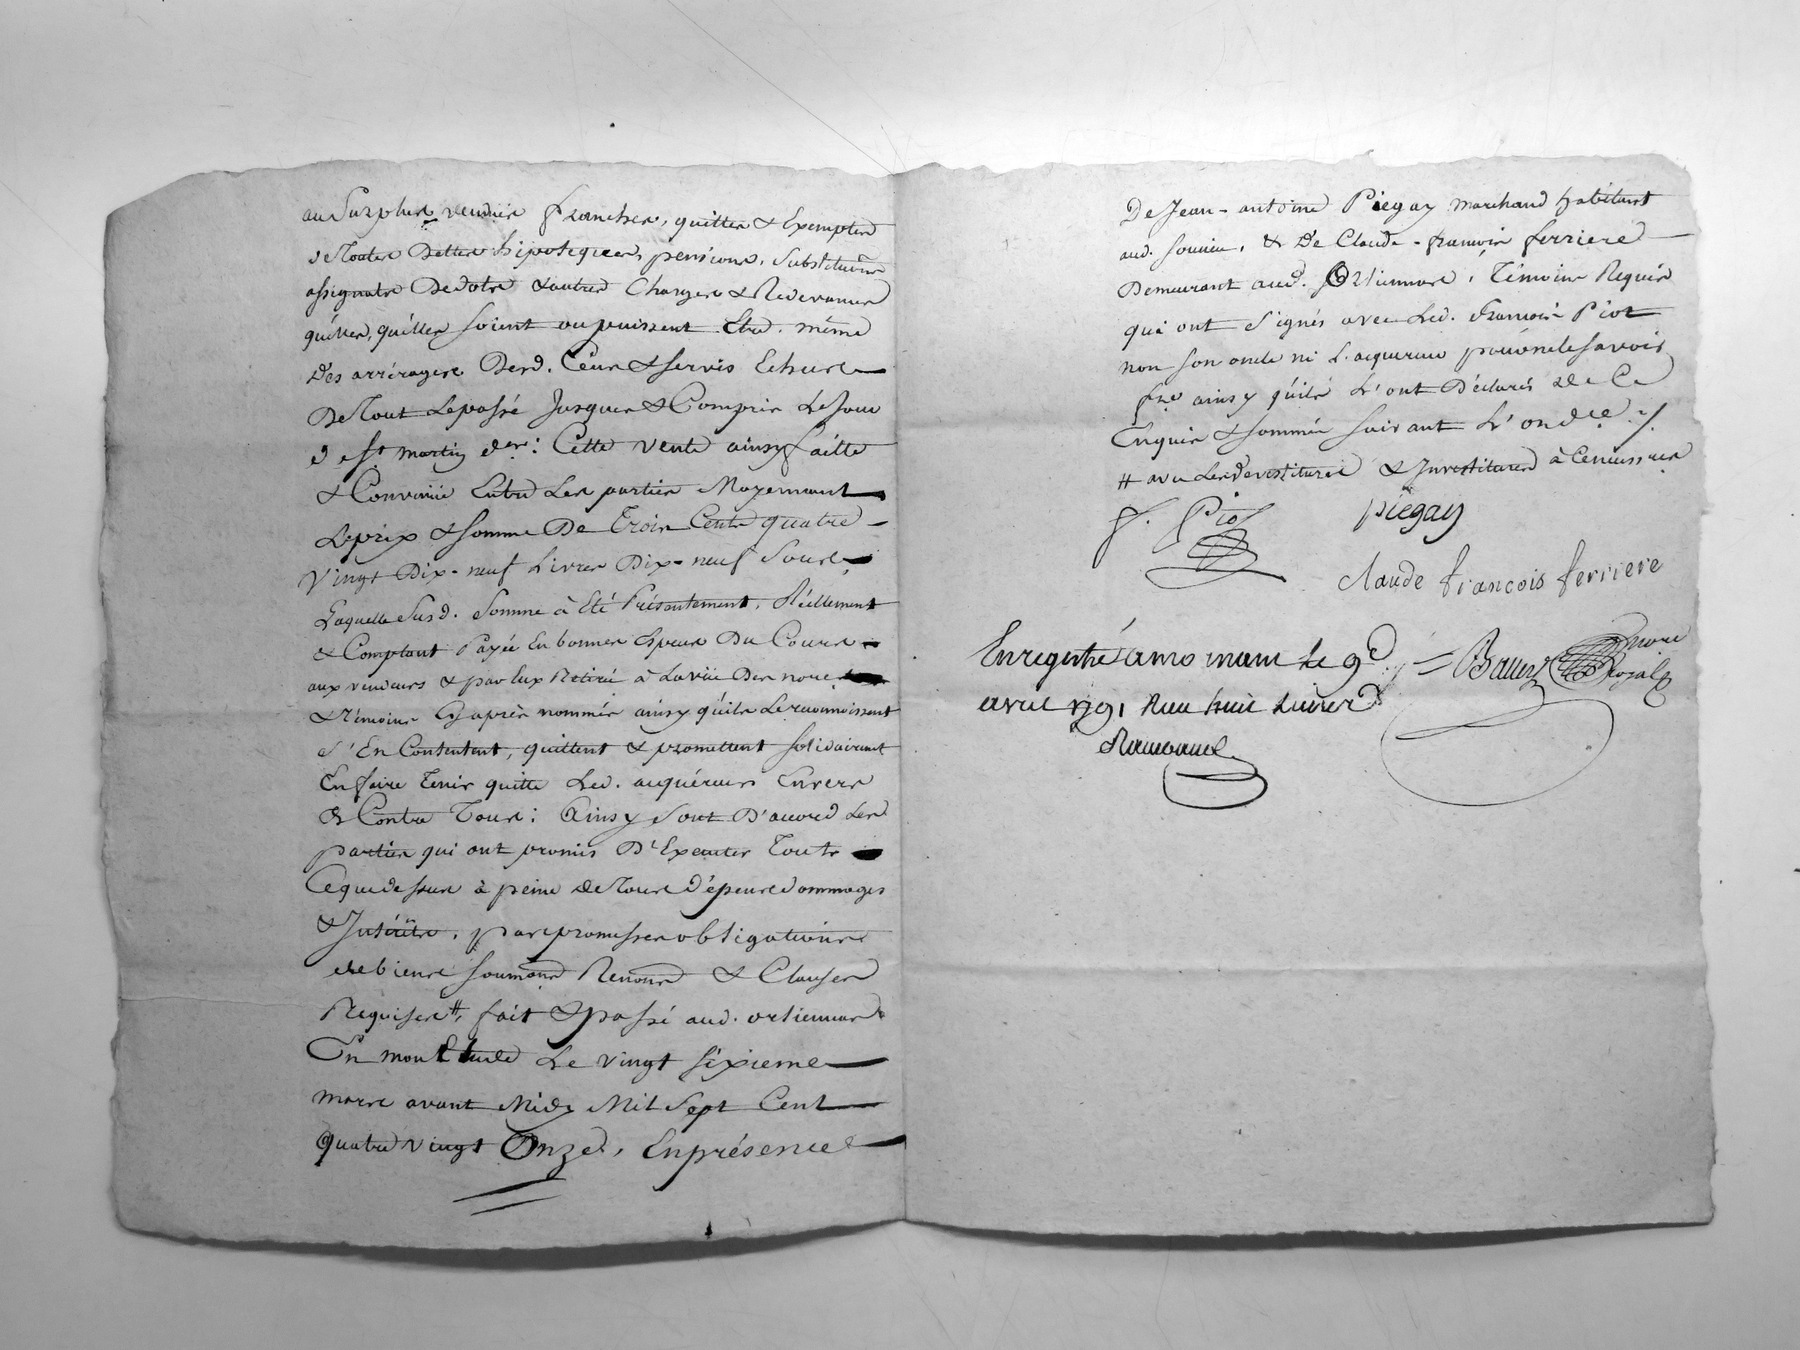 au Surplus vendue franches, quittes & Exemptes
de Toutes Dettes hipoteques, pensions, Substitu͠ons
assignats De dots & autres Charges & Redevances
qu'elles, qu'elles soient ou puissent Etre, même
Des arrérages Desd. Cens & servis Echus
De Tout Le passé Jusques & Compris Le Jour
de st martin der: Cette vente ainsy faitte
& Convenüe Entre Les parties Moyennant
Le prix & somme De Trois Cents quatre
Vingt Dix-neuf Livres Dix-neuf Sous
Laquelle Susd. Somme à Eté Présentement, Réellement
& Comptant Payée En bonnes Espèces Du Cours
aux vendeurs & par Eux Retiré à La vüe Des nore
& témoins Cy après nommés ainsy qu'ils Le reconnoissent
s'En Contentent, quittent & promettent solidairement
En faire Tenir quitte Led. acquéreur Envers
& Contre Tous: Ainsy sont D'accord Les
parties qui ont promis D'Executer Tout
Ce que dessus à peine de Tous dépens dommages
& Intérêts, par promesses obligations
de biens soumons Renons & Clauses
Requises #, fait & passé aud. ortiennas
En mon Etude Le vingt sixieme
mars avant Midy Mil Sept Cent
quatre vingt Onze, En présence
De Jean-antoine Piegay marchand habitant
aud. & De Claude-francois ferriere
Demeurant aud. Ortiennas, Témoins Requis
qui ont Signés avec Led. francois Piot
non son oncle ni L'acquereur pour ne le savoir
fre ainsy qu'ils L'ont Déclarés de Ce
Enquis & sommés suivant L'ondce ./.
# avec Les devestitures & Investitures à Ce necessaires
f. Piot piegay
claude francois ferriere
Enregistré a le 9e
avril 1791 Reçu huit Livres
nore Royal